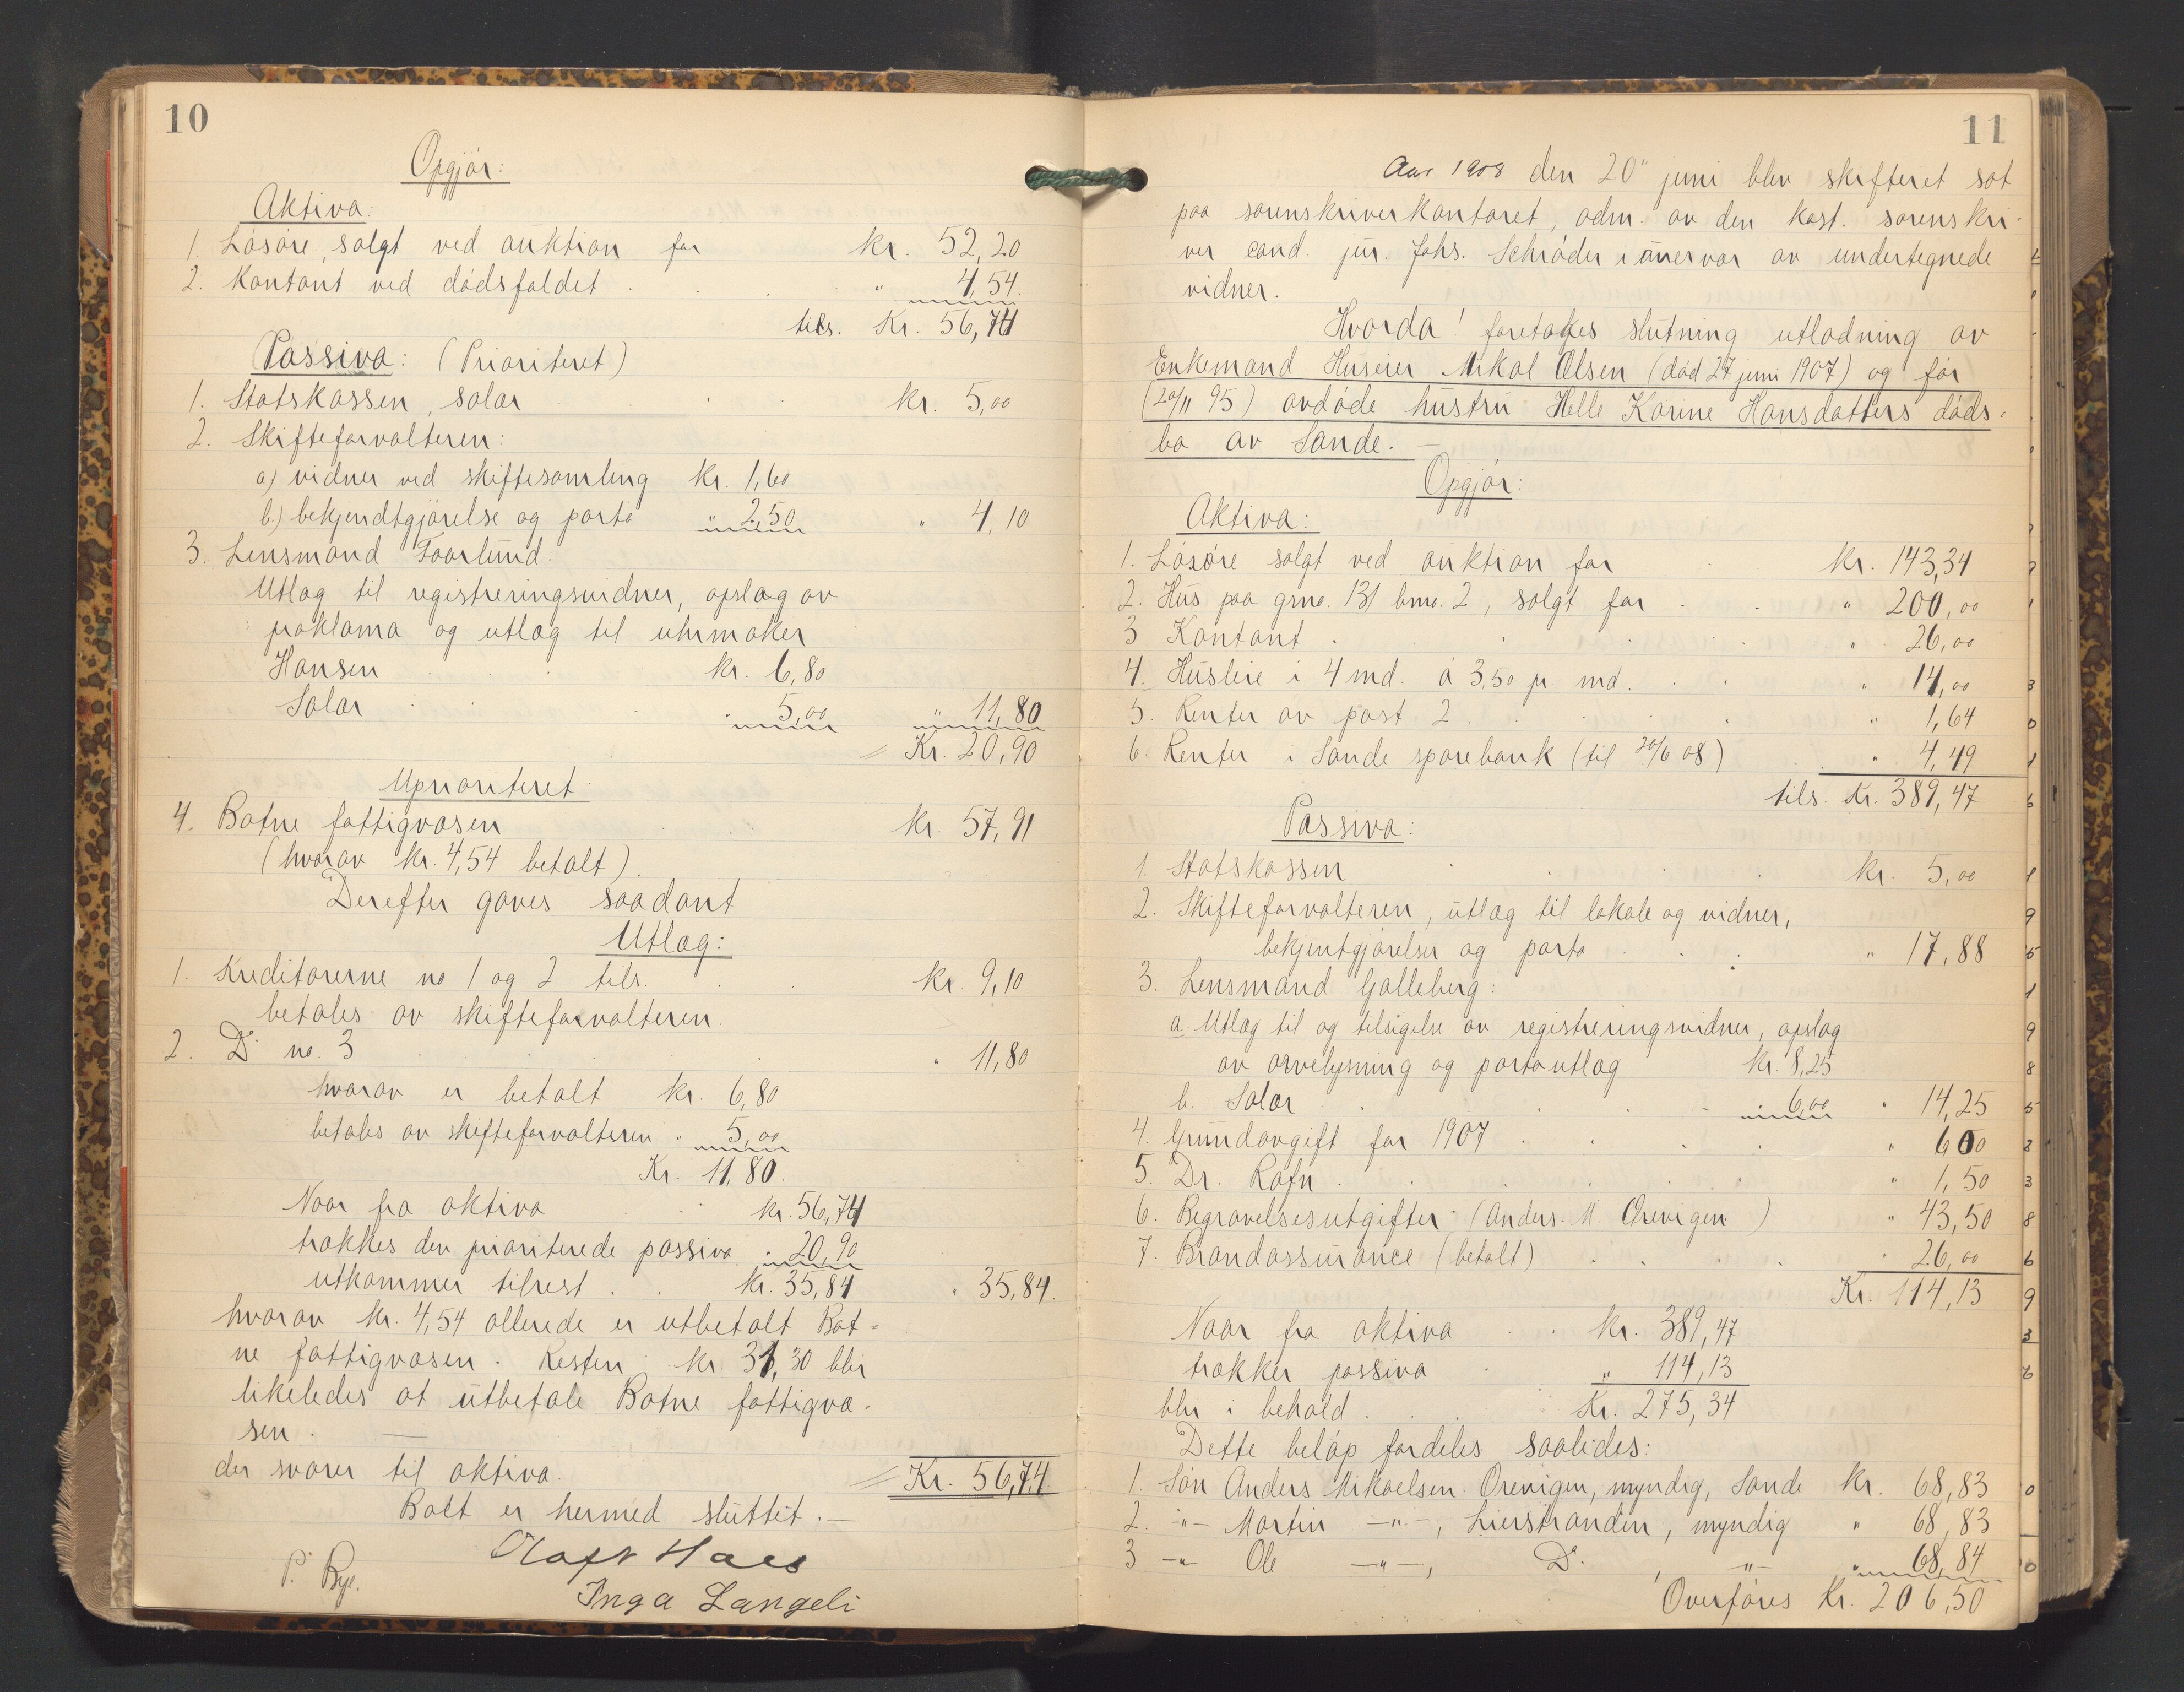 10
Opgjør:
Aktiva:
1. Løsøre, solgt ved auktion for kr. 52,20
2. Kontant ved dødsfaldet . . . " 4,54.
tils. Kr. 56,74
Passiva: (Prioriteret)
1. Statskassen, salær . . . kr. 5,00
2. Skifteforvalteren:
a) vidner ved skiftesamling kr. 1,60
b.) bekjendtgjørelse og porto " 2,50 " 4,10
3. Lensmand Faarlund:
Utlæg til registreringsvidner, opslag av
proklama og utlæg til uhrmaker
Hansen . . . kr. 6,80
Salær . . . " 5,00 " 11,80
= Kr. 20,90
Uprioriteret:
4. Botne fattigvæsen . . . kr. 57,91
(hvorav kr. 4,54 betalt).
Derefter gaves saadant
Utlæg:
1. Kreditorerne no 1 og 2 tils. . . kr. 9,10
betales av skifteforvalteren.
2. Do no. 3 . . . " 11,80
hvorav er betalt kr. 6,80
betales av skifteforvalteren " 5,00
Kr. 11,80.
Naar fra aktiva . . kr. 56,74
trækkes den prioriterede passiva " 20,90
utkommer tilrest . . kr. 35,84 " 35,84.
hvorav kr. 4,54 allerede er utbetalt Bot-
ne fattigvæsen. Resten kr. 31,30 blir
likeledes at utbetale Botne fattigvæ-
sen. —
der svarer til aktiva. = Kr. 56,74
Boet er hermed sluttet. —
Olaft Haes
P. Bye. Inga Langeli
11
Aar 1908 den 20" juni blev skifteret sat
paa sorenskriverkontoret, adm. av den kost. sorenskri-
ver cand. jur. Johs. Schrøder i nærvær av undertegnede
vidner.
Hvorda! foretokes slutning utlodning av
Enkemand Huseier Mikal Olsen (død 27 juni 1907) og før
(20/11 95) avdøde hustru Helle Karine Hansdatters døds-
bo av Sande. —
Opgjør:
Aktiva:
1. Løsøre solgt ved auktion for . kr. 143,34
2. Hus paa gno. 131 bno. 2, solgt for . . " 200,00
3 Kontant . . . " 26,00
4. Husleie i 4 md. á 3,50 pr. md. . . " 14,00
5. Renter av post 2 . . . " 1,64
6. Renter i Sande sparebank (til 20/6 08) . " 4,49
tils. Kr. 389,47
Passiva:
1. Statskassen . . . kr. 5,00
2. Skifteforvalteren, utlæg til lokale og vidner,
bekjentgjørelser og porto . . . " 17,88
3. Lensmand Galleberg:
a Utlæg til og tilsigelse av registreringsvidner, opslag
av arvelysning og portoutlæg kr. 8,25
b. Salær . . . " 6,00 " 14,25
4. Grundavgift for 1907 . . . " 6 00
5. Dr. Rafn . . . " 1,50
6. Begravelsesutgifter (Anders. M. Orevigen) " 43,50
7. Brandassurance (betalt) . . . " 26,00
Kr. 114,13
Naar fra aktiva . . kr. 389,47
trækker passiva . " 114,13
blir i behold . . . Kr. 275,34
Dette beløp fordeles saaledes:
1. Søn Anders Mikaelsen Orevigen, myndig, Sande kr. 68,83
2. -"- Martin -"-, Lierstranden, myndig " 68,83
3 -"- Ole -"-, Do. , -"- " 68,84
Overføres Kr. 206,50